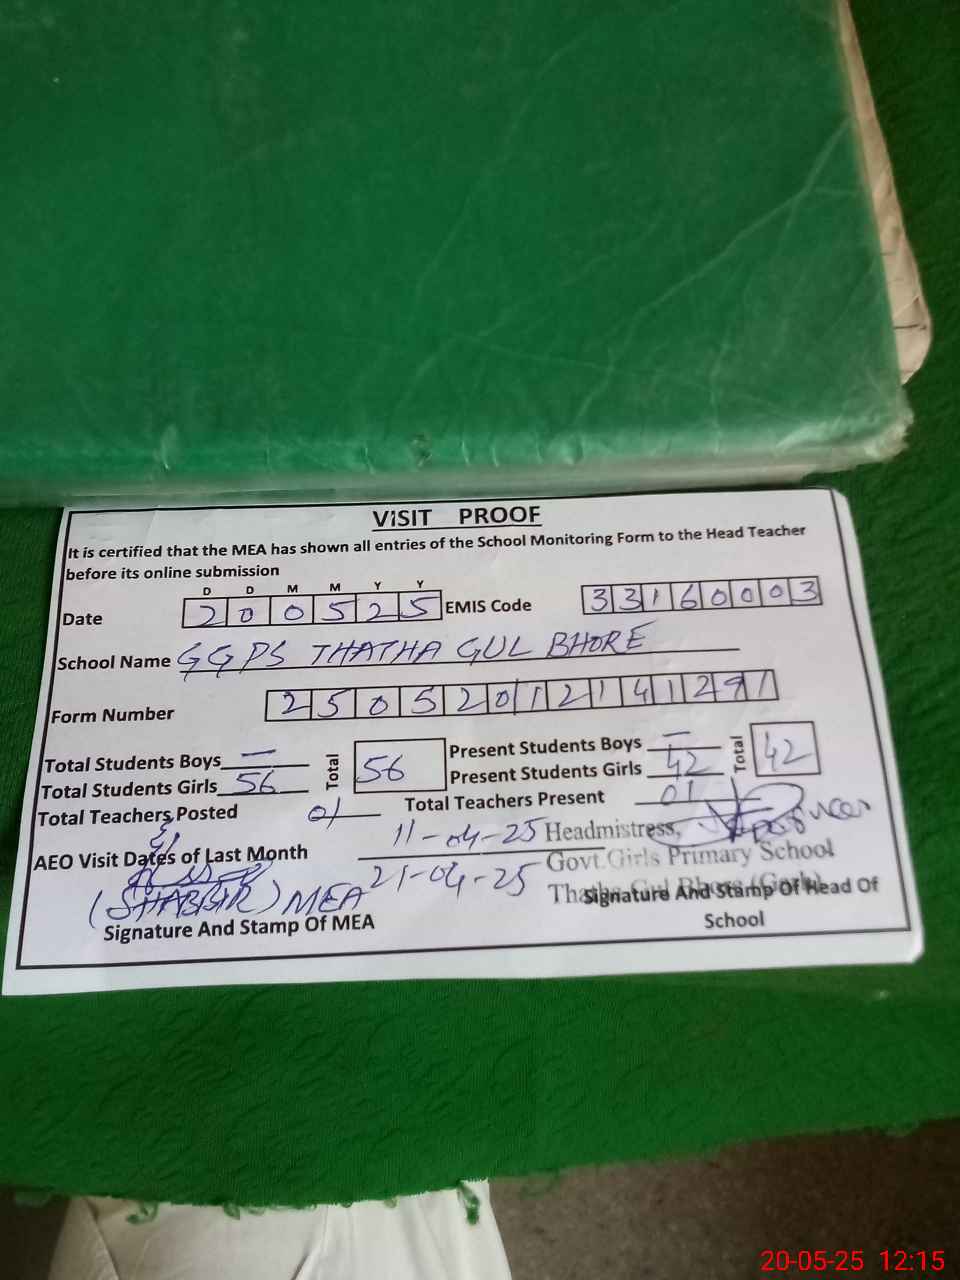 VISIT PROOF
It is certified that the MEA has shown all entries of the School Monitoring Form to the Head Teacher
before its online submission
D D M M Y Y
Date 2 0 0 5 2 5 EMIS Code 3 3 1 6 0 0 0 3
School Name GGPS THATHA GUL BHORE
Form Number 2 5 0 5 2 0 1 2 1 4 1 2 9 1
Total Students Boys — Total 56 Present Students Boys — Total 42
Total Students Girls 56 Present Students Girls 42
Total Teachers Posted 01 Total Teachers Present 01
AEO Visit Dates of Last Month 11-04-25 Headmistress,
21-04-25 Govt. Girls Primary School
(SHABBIR) MEA
Signature And Stamp Of MEA Signature And Stamp Of Head Of
School
20-05-25 12:15